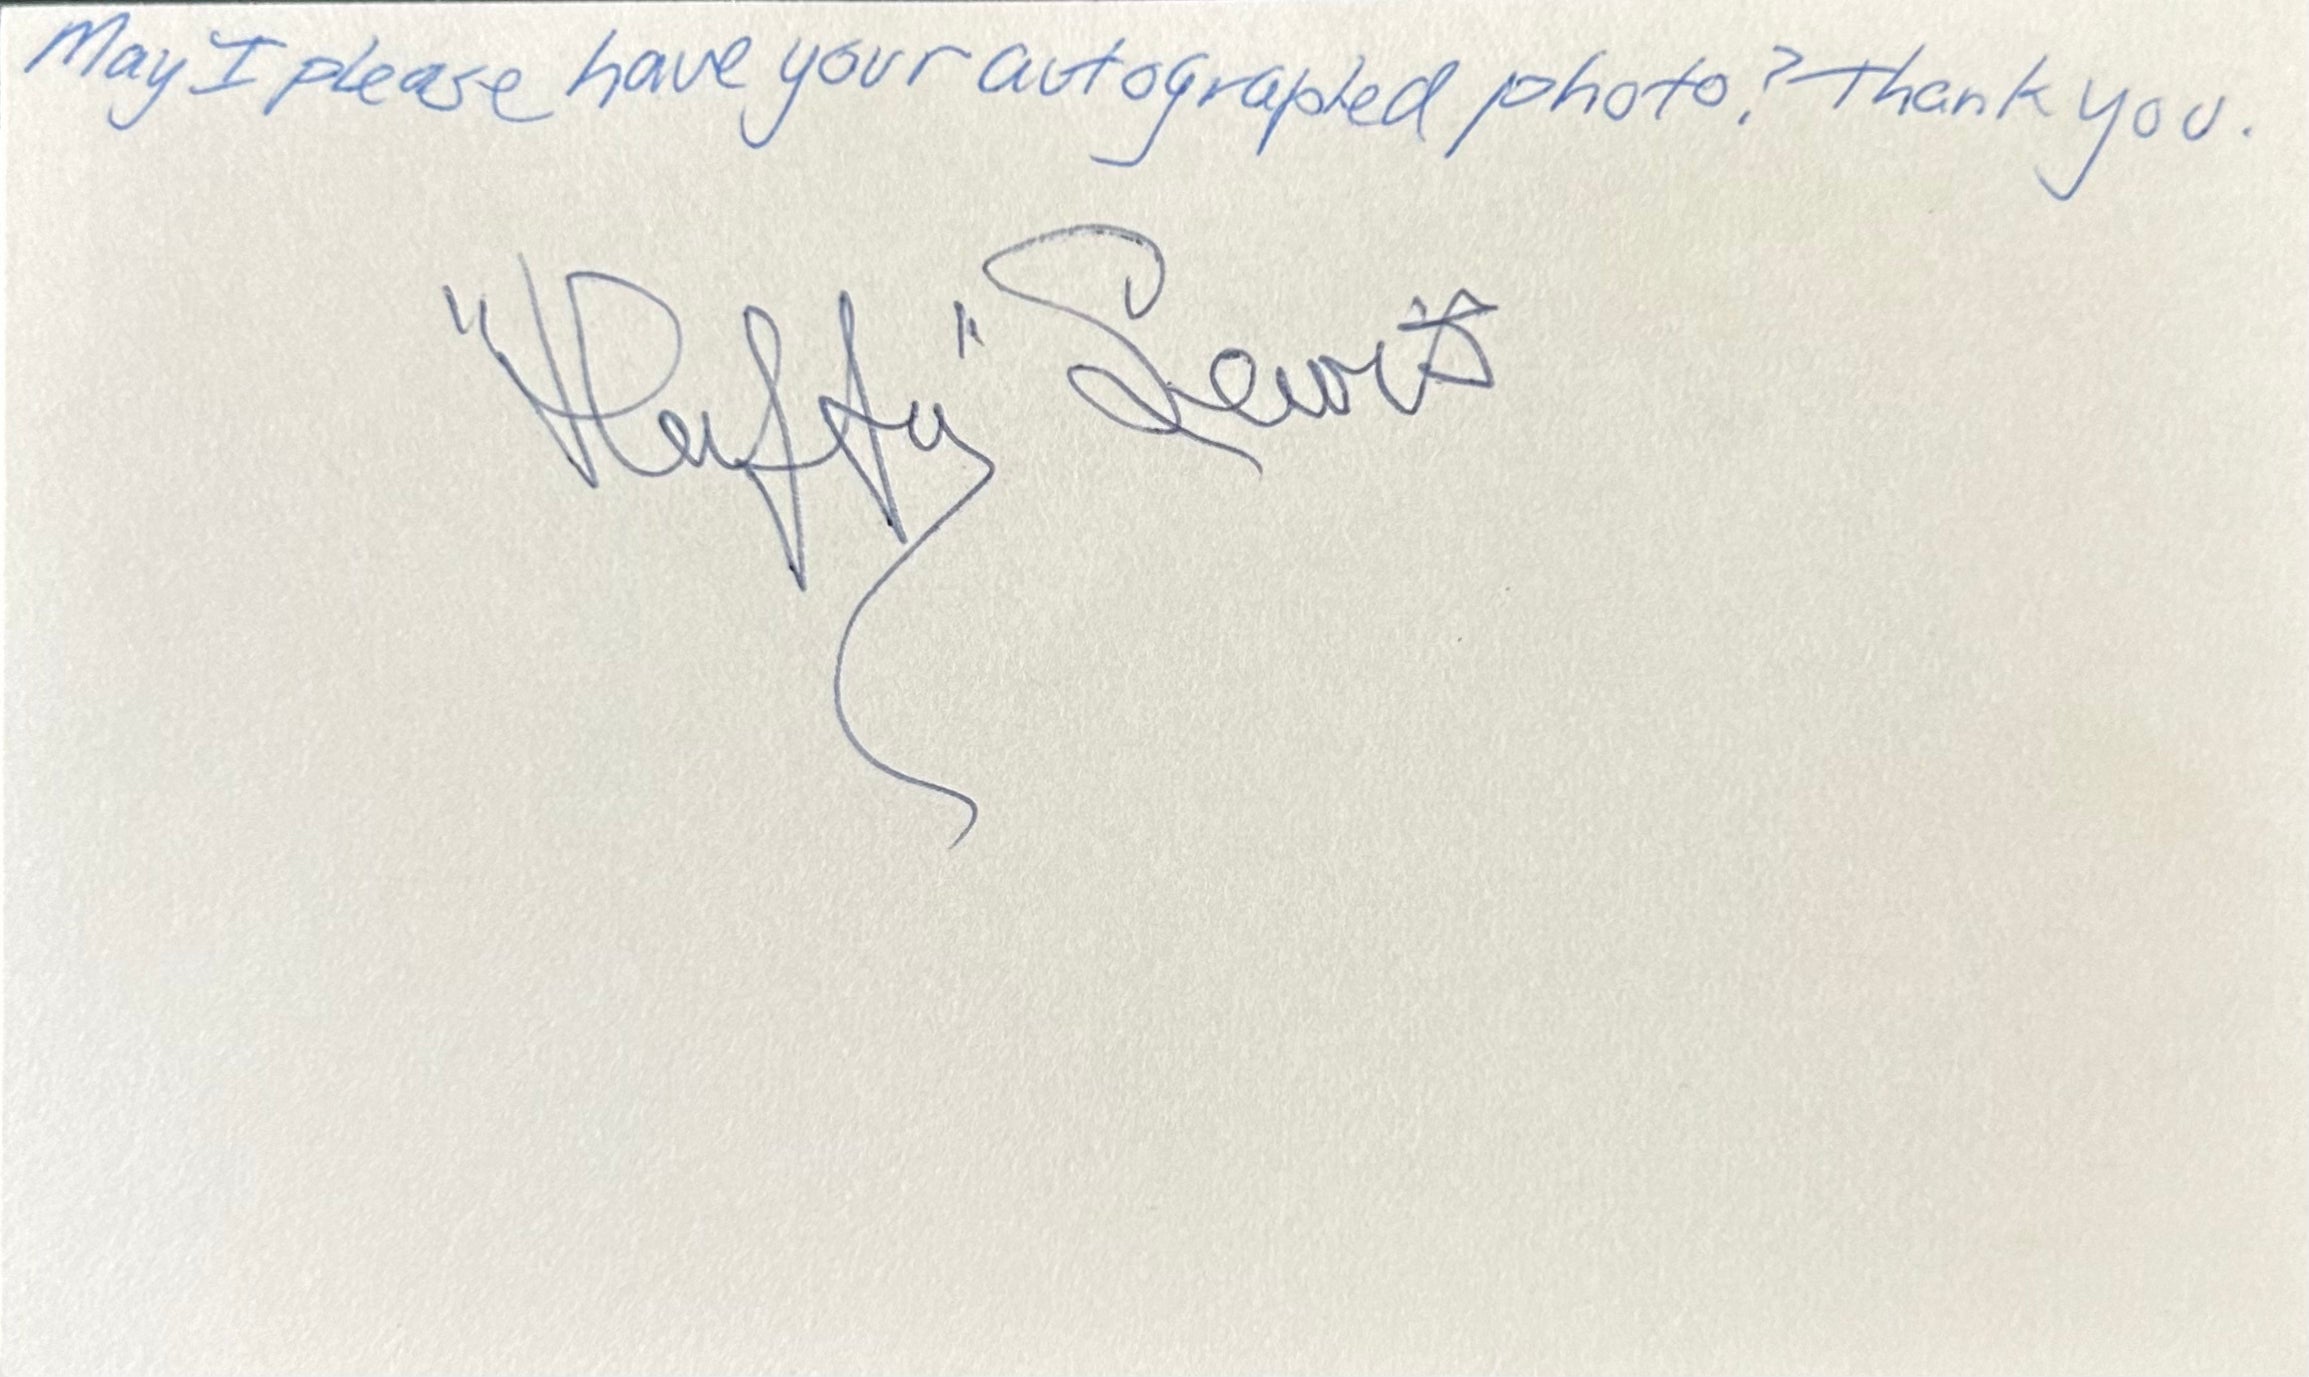 May I please have your autographed photo? Thank you.
"Hufty" Lewis